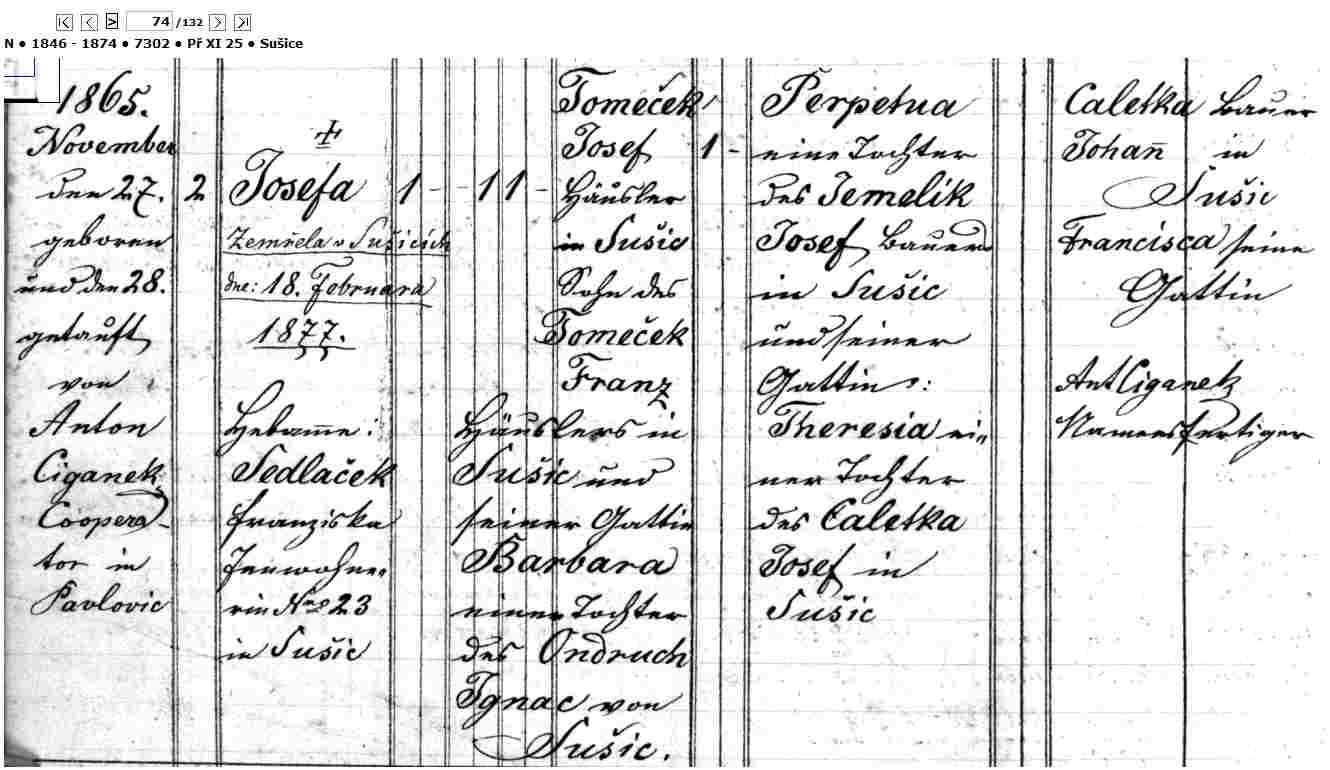 74 /132
N • 1846 - 1874 • 7302 • Př XI 25 • Sušice
1865.
November
den 27.
geboren
und den 28.
getauft
von
Anton
Ciganek
Coopera-
tor in
Pavlovic
2
Josefa
Zemřela v Sušicích
dne: 18. Februara
1877.
Hebam̄e:
Sedlaček
Franziska
Innwohne-
rin Nro 23
in Sušic
1 - - 1 1 -
Tomeček
Josef
Häusler
in Sušic
Sohn des
Tomeček
Franz
Häuslers in
Sušic und
seiner Gattin
Barbara
einer Tochter
des Ondruch
Ignac von
Sušic.
1 -
Perpetua
eine Tochter
des Jemelik
Josef, Bauers
in Sušic
und seiner
Gattin:
Theresia ei„
ner Tochter
des Caletka
Josef in
Sušic
Caletka Bauer
Johan̄ in
Sušic
Francisca seine
Gattin
Ant Ciganek
Namensfertiger